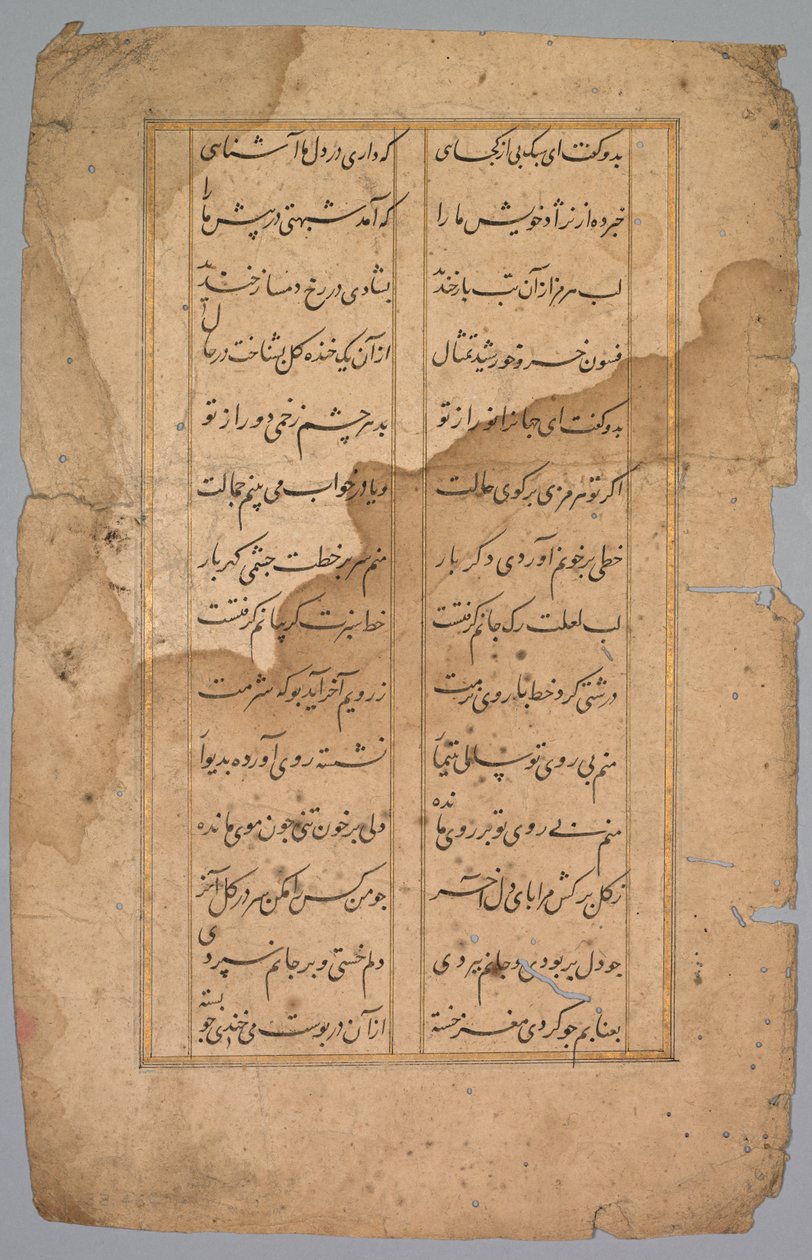 بدو کفت ای سبک پی از کجای که داری در دل ما آشنای
خبر ده از نژاد خویش ما را که آمد شبهتی در پیش ما را
لب هرمز از آن تب باز خندید بشادی در رخ دمساز خندید
فسون خسرو خورشید تمثال از آن یک خنده کل بشناخت در حال
بدو کفت ای جهانرا نور از تو بد هر چشم زخمی دور از تو
اکر تو هرمزی برکوی حالت و یا در خواب می بینم جمالت
خطی بر خونم آوردی دکر بار منم سر بر خطت چشمی کهر بار
لب لعلت رک جانم کرفتست خط سبزت کریبانم کرفتست
درشتی کرد خط با روی نرمت ز رویم آخر آید بو که شرمت
منم بی روی تو نشسته روی آورده بدیوار
منم بی روی تو بر روی مانده دلی بر خون تنی جون موی مانده
ز کل برکش مرا بای دل آخر جو من کس را مکن سر در کل آخر
جو دل بربودی و جانم ببردی دلم خستی و بر جانم سپردی
بعنابم جو کردی مغز خسته از آن در بوست می خندی جو بسته